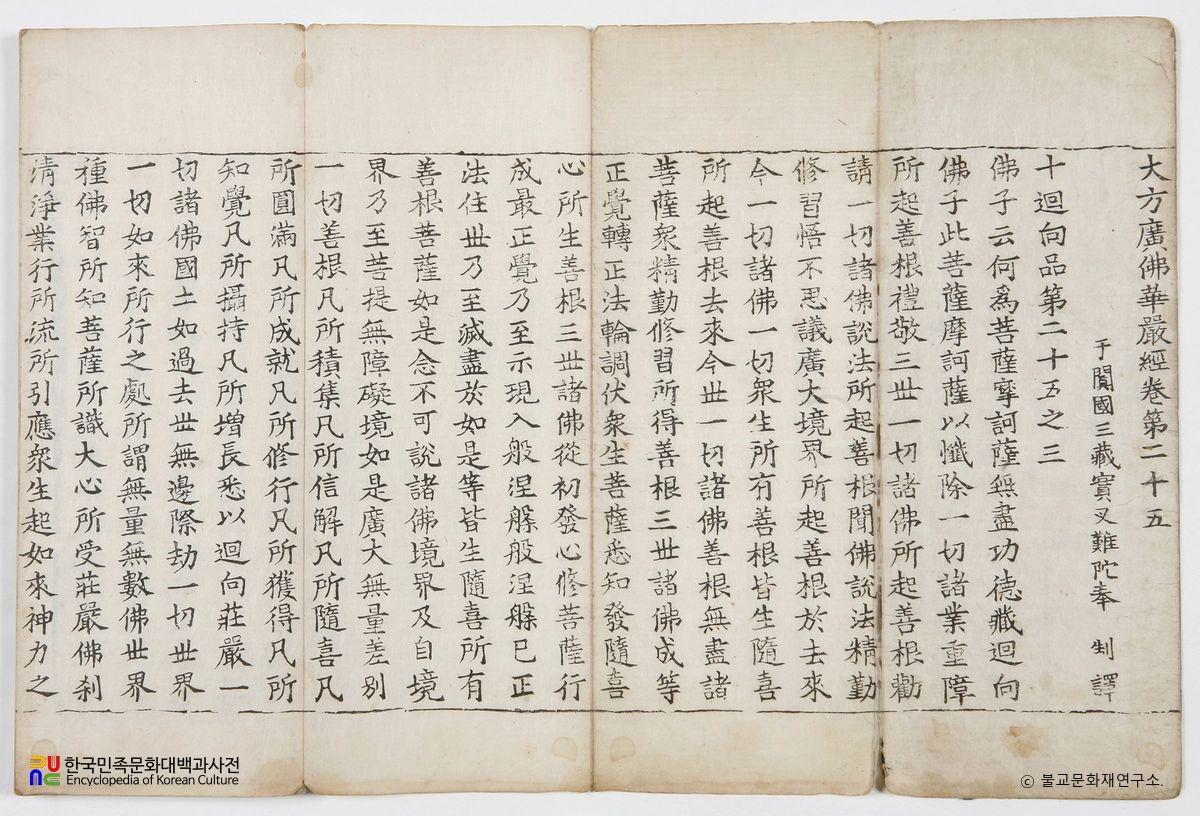 大方廣佛華嚴經卷第二十五
于闐國三藏實叉難陀奉 制 譯
十迴向品第二十五之三
佛子云何爲菩薩摩訶薩無盡功德藏迴向
佛子此菩薩摩訶薩以懺除一切諸業重障
所起善根禮敬三世一切諸佛所起善根勸
請一切諸佛說法所起善根聞佛說法精勤
修習悟不思議廣大境界所起善根於去來
今一切諸佛一切衆生所有善根皆生隨喜
所起善根去來今世一切諸佛善根無盡諸
菩薩衆精勤修習所得善根三世諸佛成等
正覺轉正法輪調伏衆生菩薩悉知發隨喜
心所生善根三世諸佛從初發心修菩薩行
成最正覺乃至示現入般涅槃般涅槃已正
法住世乃至滅盡於如是等皆生隨喜所有
善根菩薩如是念不可說諸佛境界及自境
界乃至菩提無障礙境如是廣大無量差別
一切善根凡所積集凡所信解凡所隨喜凡
所圓滿凡所成就凡所修行凡所獲得凡所
知覺凡所攝持凡所增長悉以迴向莊嚴一
切諸佛國土如過去世無邊際劫一切世界
一切如來所行之處所謂無量無數佛世界
種佛智所知菩薩所識大心所受莊嚴佛刹
清淨業行所流所引應衆生起如來神力之
한국민족문화대백과사전
Encyclopedia of Korean Culture
© 불교문화재연구소.